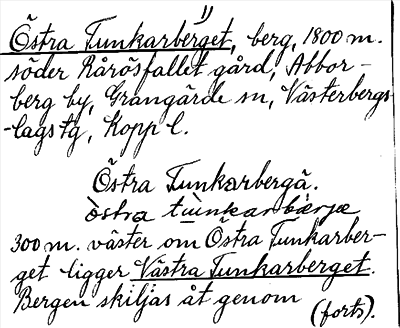 1)
Östra Tunkarberget, berg, 1800 m.
söder Rårösfallet gård, Abbor-
berg by, Grangärde sn, Västerbergs
-lags tg, Kopp l.
Östra Tunkarbergä.
òstra tùnkarbärjæ
300 m. väster om Östra Tunkarber-
get ligger Västra Tunkarberget.
Bergen skiljas åt genom
(forts).